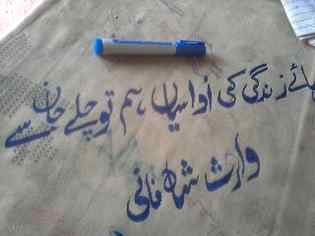 ہائے زندگی کی اُداسیاں ہم تو چلے جان سے
وارث شاہ فانی